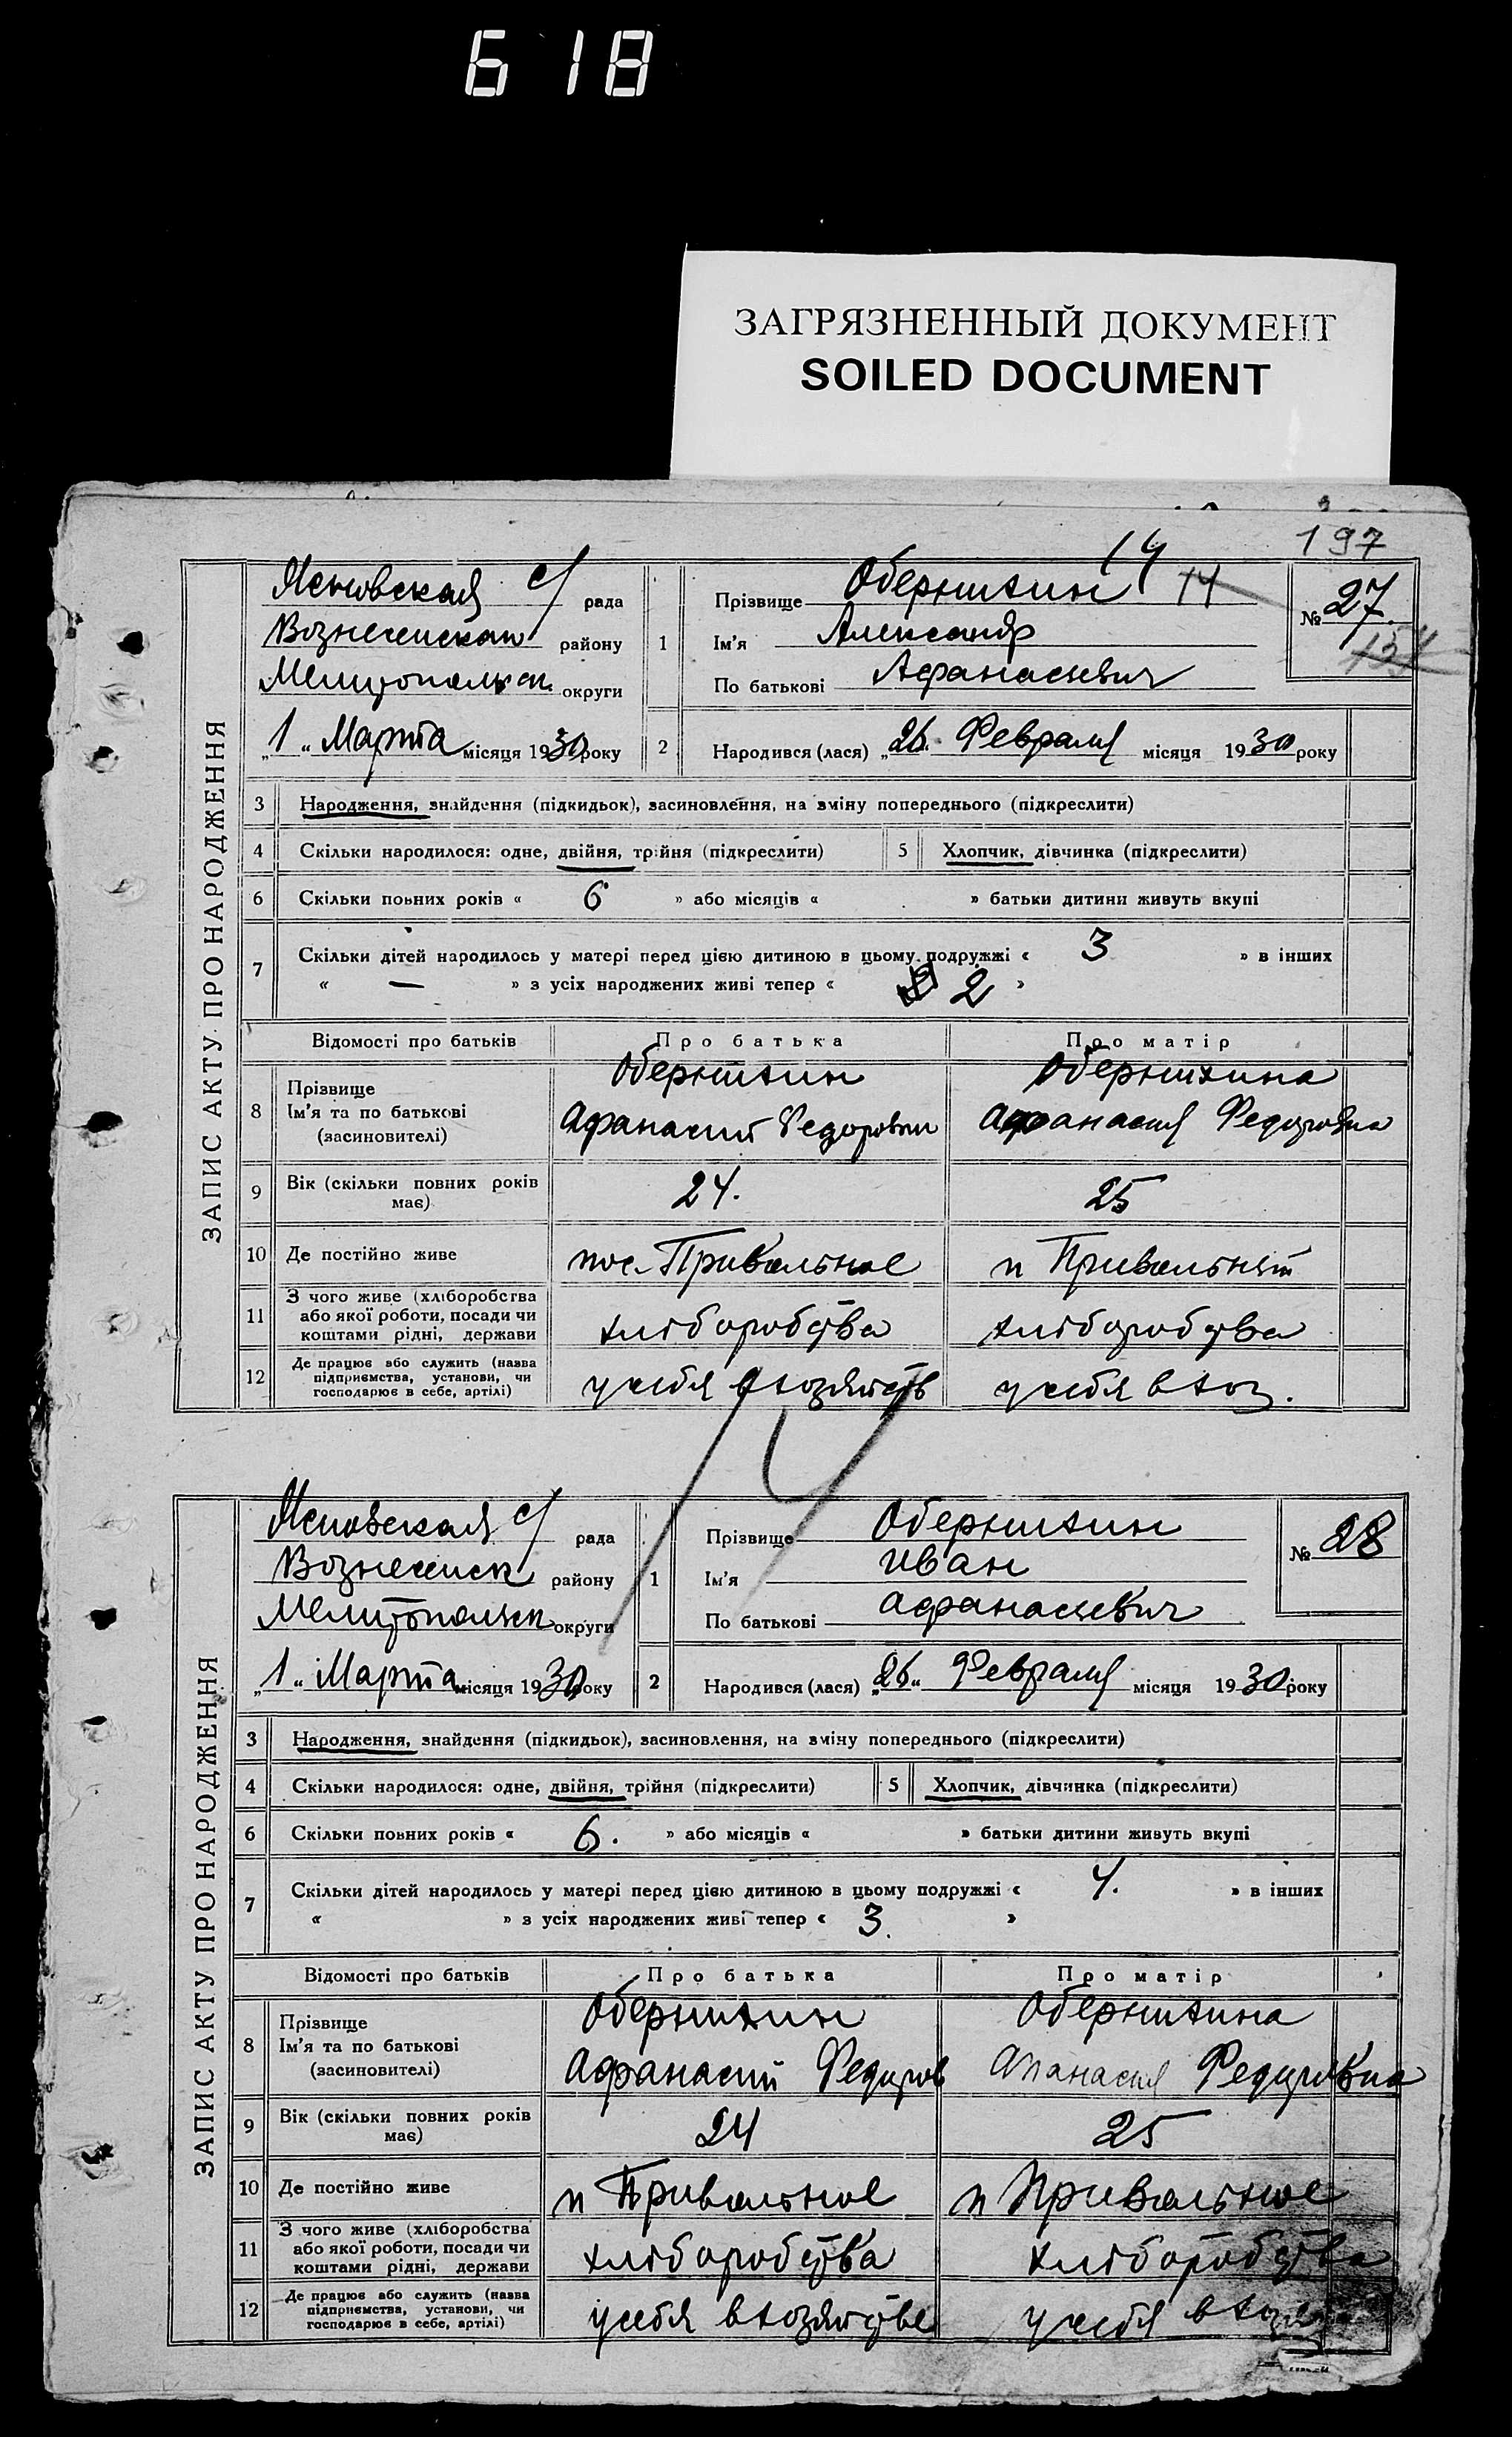 618
ЗАГРЯЗНЕННЫЙ ДОКУМЕНТ
SOILED DOCUMENT
197
ЗАПИС АКТУ ПРО НАРОДЖЕННЯ
Ясновская с/ рада
Вознесенскаи району
Мелитопольск. округи
„1“ Марта місяця 1930 року
1 Прізвище Обернихин 14 14
Ім'я Александр
По батькові Афанасиевич
№ 27.
154
2 Народився (лася) „26“ Февраля місяця 1930 року
3 Народження, знайдення (підкидьок), засиновлення, на зміну попереднього (підкреслити)
4 Скільки народилося: одне, двійня, трійня (підкреслити) 5 Хлопчик, дівчинка (підкреслити)
6 Скільки повних років « 6 » або місяців « » батьки дитини живуть вкупі
7 Скільки дітей народилось у матері перед цією дитиною в цьому подружжі « 3 » в інших
« — » з усіх народжених живі тепер « 2 »
Відомості про батьків Про батька Про матір
8 Прізвище Ім'я та по батькові (засиновителі)
Обернихин Обернихина
Афанасий Федорович Афанасия Федоровна
9 Вік (скільки повних років має) 24. 25
10 Де постійно живе пос. Привольное п Привольный
11 З чого живе (хліборобства або якої роботи, посади чи коштами рідні, держави хліборобства хліборобства
12 Де працює або служить (назва підприємства, установи, чи господарює в себе, артілі) у себя в хозяйств у себя в хоз.
14
ЗАПИС АКТУ ПРО НАРОДЖЕННЯ
Ясновская с/ рада
Вознесенск району
Мелитопольск округи
„1“ Марта місяця 1930 року
1 Прізвище Обернихин
Ім'я Иван
По батькові Афанасиевич
№ 28
2 Народився (лася) „26“ Февраля місяця 1930 року
3 Народження, знайдення (підкидьок), засиновлення, на зміну попереднього (підкреслити)
4 Скільки народилося: одне, двійня, трійня (підкреслити) 5 Хлопчик, дівчинка (підкреслити)
6 Скільки повних років « 6. » або місяців « » батьки дитини живуть вкупі
7 Скільки дітей народилось у матері перед цією дитиною в цьому подружжі « 4. » в інших
« » з усіх народжених живі тепер « 3. »
Відомості про батьків Про батька Про матір
8 Прізвище Ім'я та по батькові (засиновителі)
Обернихин Обернихина
Афанасий Федоров Апанасия Федоровна
9 Вік (скільки повних років має) 24 25
10 Де постійно живе п Привольное п Привольное
11 З чого живе (хліборобства або якої роботи, посади чи коштами рідні, держави хліборобства хліборобства
12 Де працює або служить (назва підприємства, установи, чи господарює в себе, артілі) у себя в хозяйстве у себя в